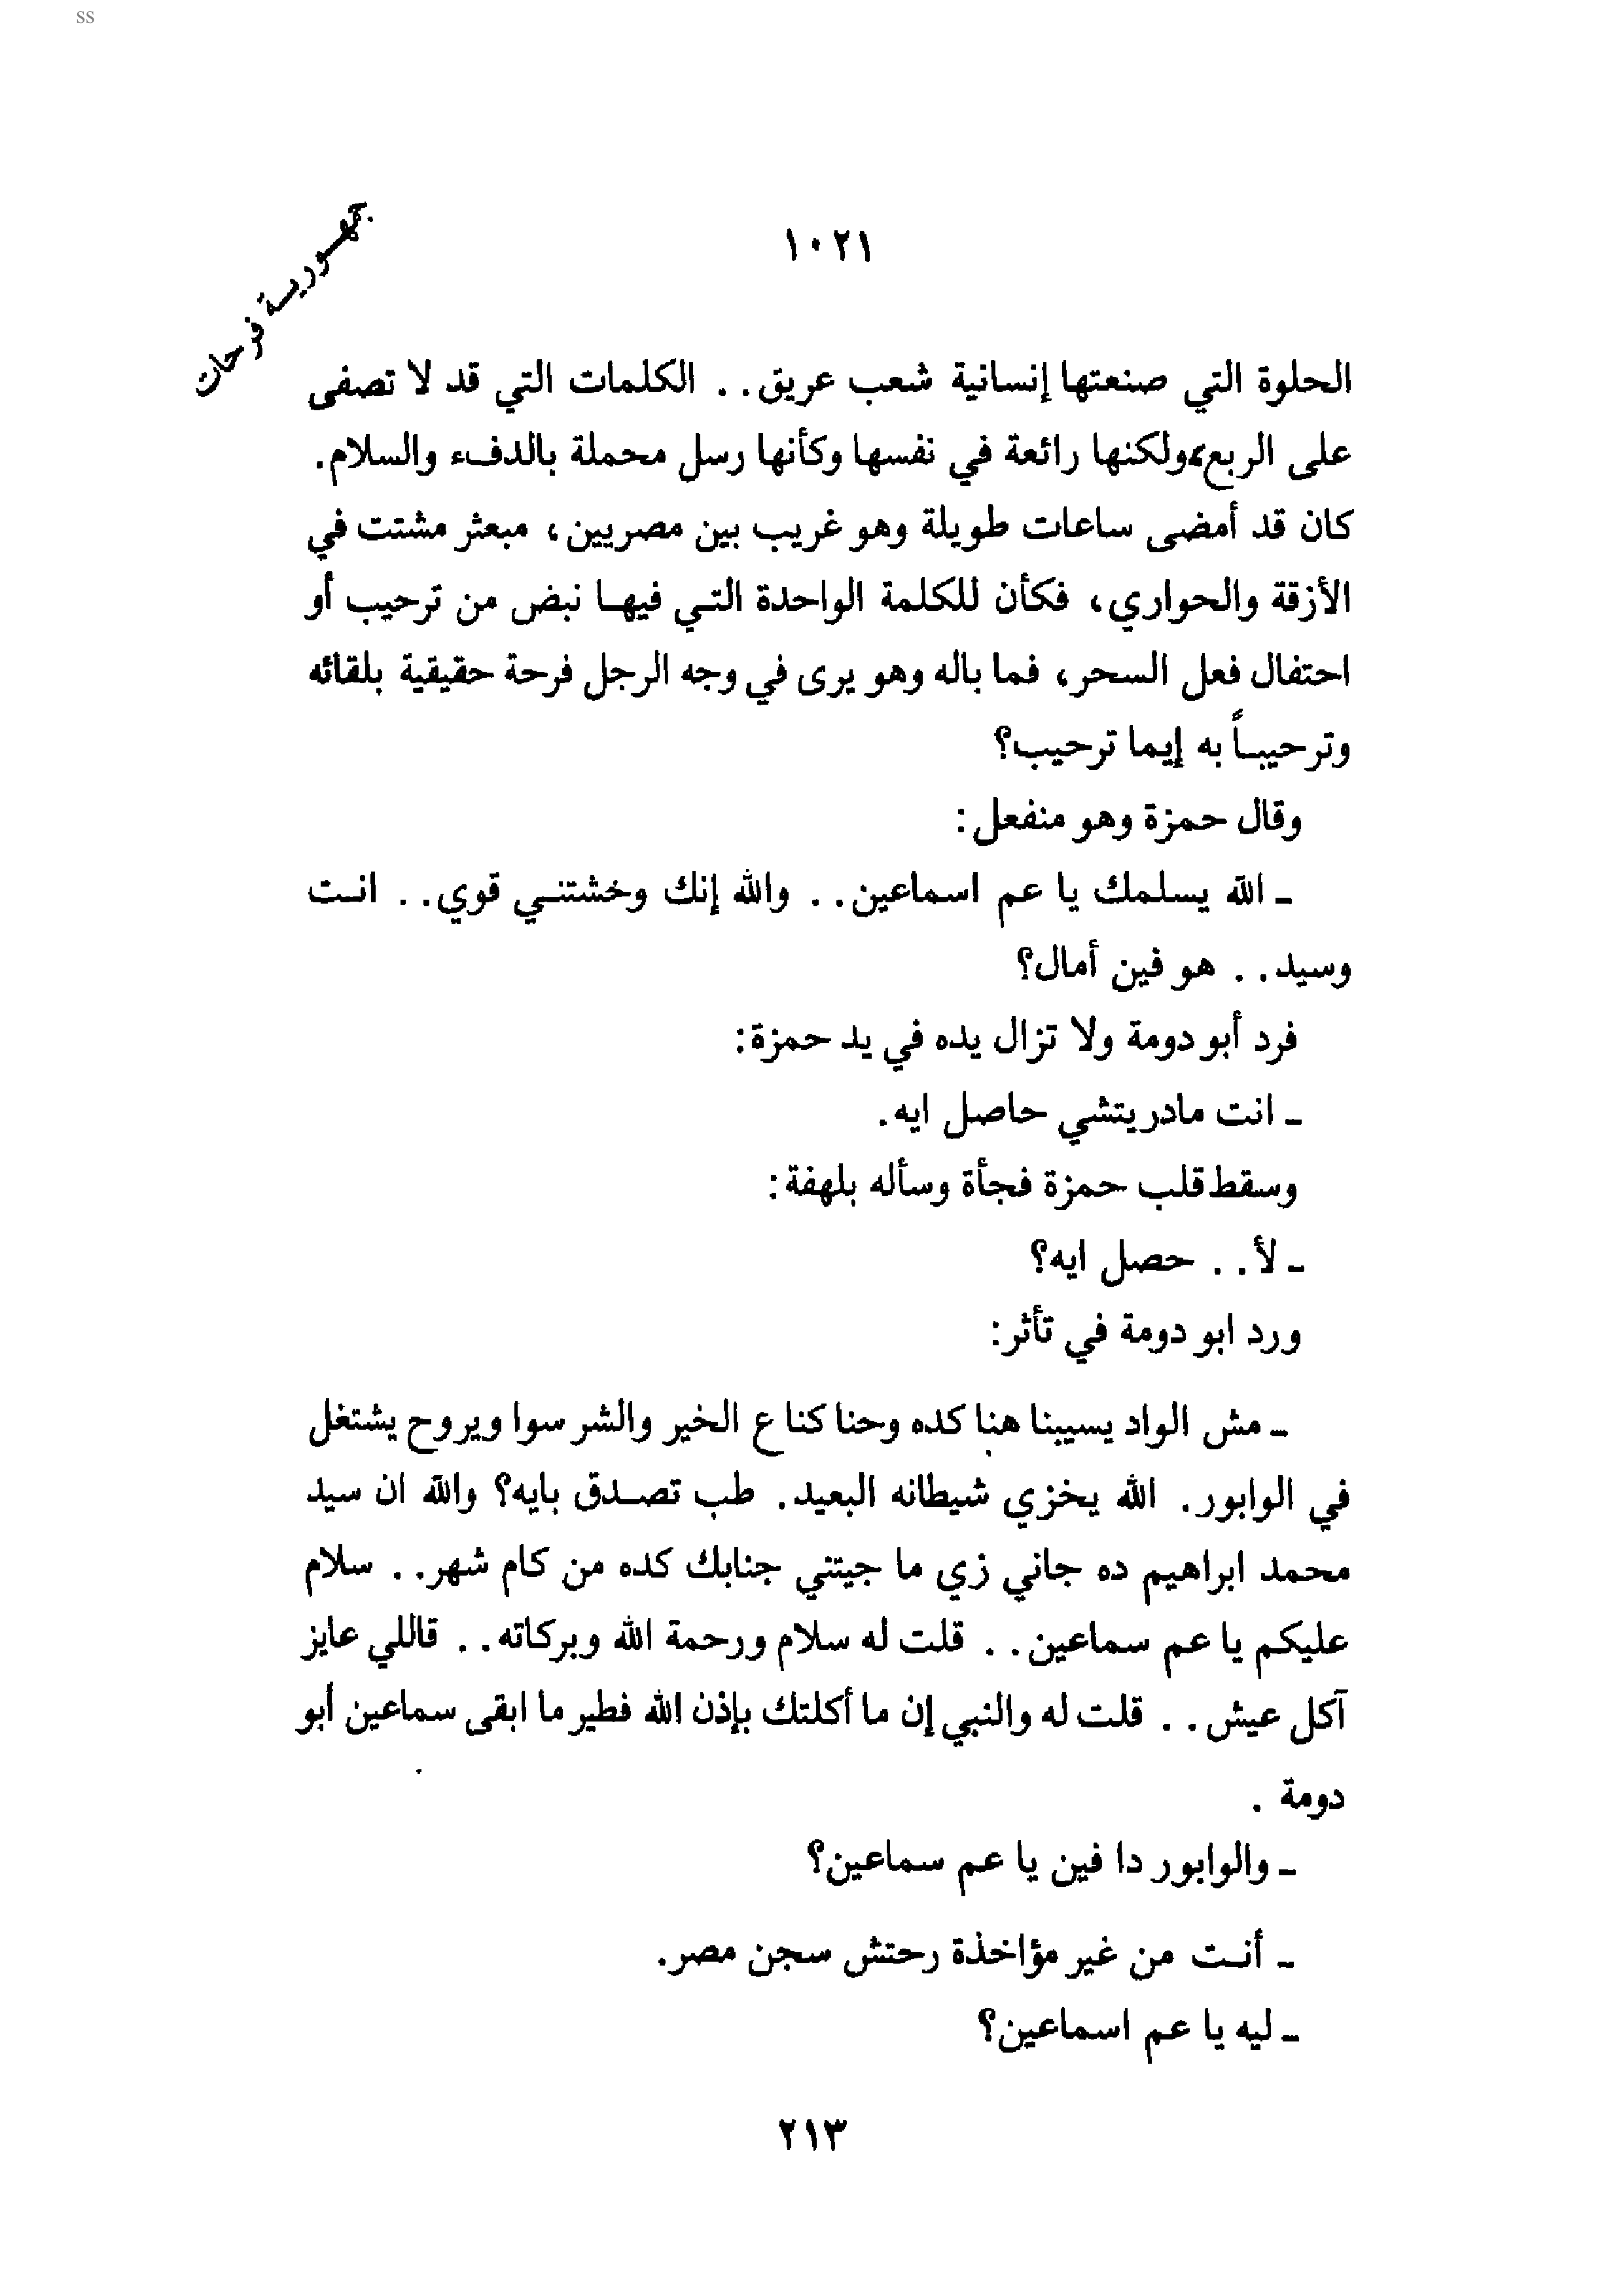 ss
جمهورية فرحات
١٠٢١
الحلوة التي صنعتها إنسانية شعب عريق. . الكلمات التي قد لا تصفى
على الربع، ولكنها رائعة في نفسها وكأنها رسل محملة بالدفء والسلام.
كان قد أمضى ساعات طويلة وهو غريب بين مصريين، مبعثر مشتت في
الأزقة والحواري، فكأن للكلمة الواحدة التي فيها نبض من ترحيب أو
احتفال فعل السحر، فما باله وهو يرى في وجه الرجل فرحة حقيقية بلقائه
وترحيباً به إيما ترحيب؟
وقال حمزة وهو منفعل:
ـ الله يسلمك يا عم اسماعين. . والله إنك وخشتني قوي. . انت
وسيد. . هو فين أمال؟
فرد أبو دومة ولا تزال يده في يد حمزة:
ـ انت مادريتشي حاصل ايه.
وسقط قلب حمزة فجأة وسأله بلهفة:
ـ لأ. . حصل ايه؟
ورد ابو دومة في تأثر:
ـ مش الواد يسيبنا هنا كده وحنا كنا ع الخير والشر سوا ويروح يشتغل
في الوابور. الله يخزي شيطانه البعيد. طب تصدق بايه؟ والله ان سيد
محمد ابراهيم ده جاني زي ما جيتني جنابك كده من كام شهر. . سلام
عليكم يا عم سماعين. . قلت له سلام ورحمة الله وبركاته. . قاللي عايز
آكل عيش. . قلت له والنبي إن ما أكلتك بإذن الله فطير ما ابقى سماعين أبو
دومة .
ـ والوابور دا فين يا عم سماعين؟
ـ أنت من غير مؤاخذة رحتش سجن مصر.
ـ ليه يا عم اسماعين؟
٢١٣